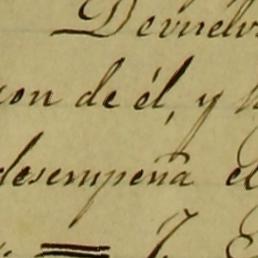 Devuelv
con de él, y
desempeña el